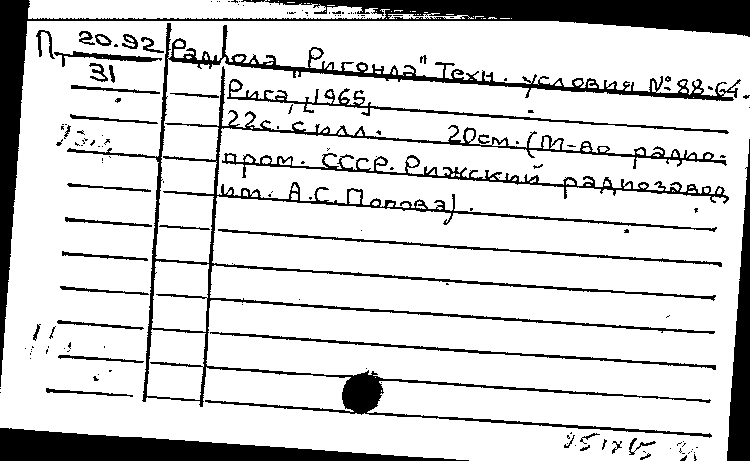 Пт 20.92 Радиола „Ригонда" Техн. условия № 88-64.
31
Рига, [1965]
22с. с илл. 20см. (М-во радио-
пром. СССР. Рижский радиозавод
им. А.С. Попова).